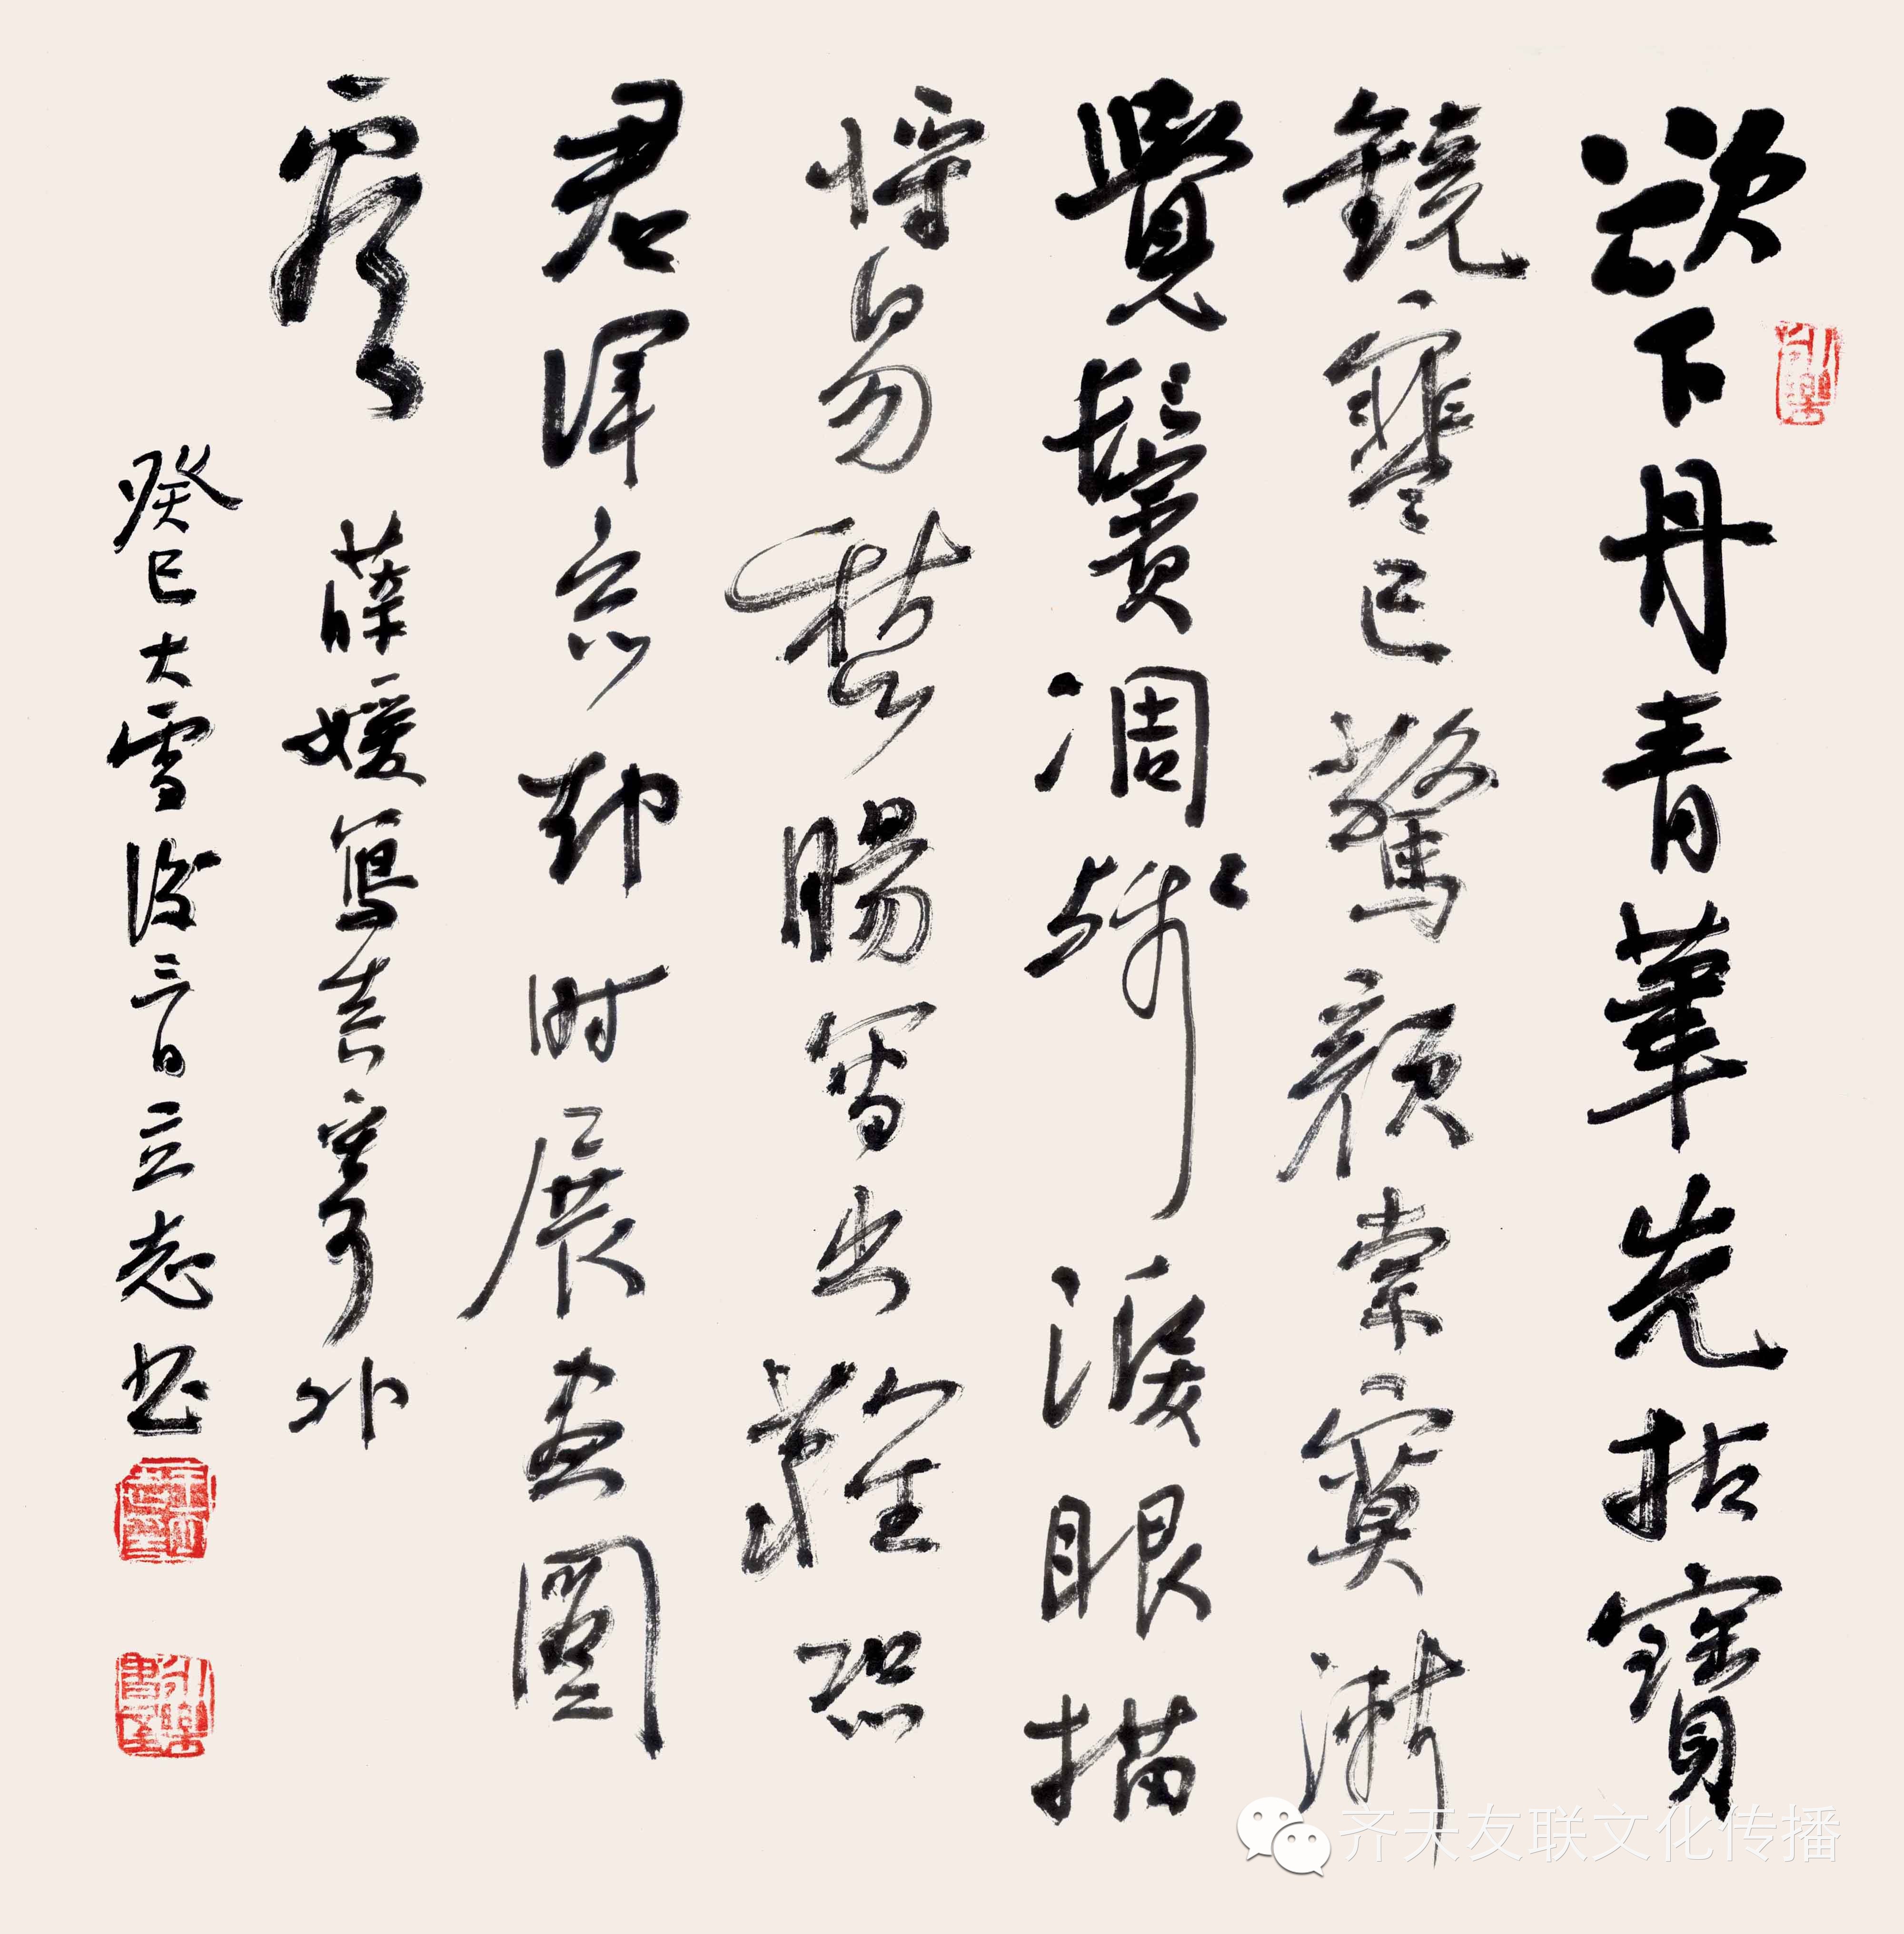 欲下丹青筆先拈寶
鏡寒已驚顏索寞漸
覺鬢凋殘淚眼描
將易愁腸寫出難恐
君渾忘却時展畫圖
看
薛媛寫真寄外
癸巳大雪後三日立志书
齐天友联文化传播